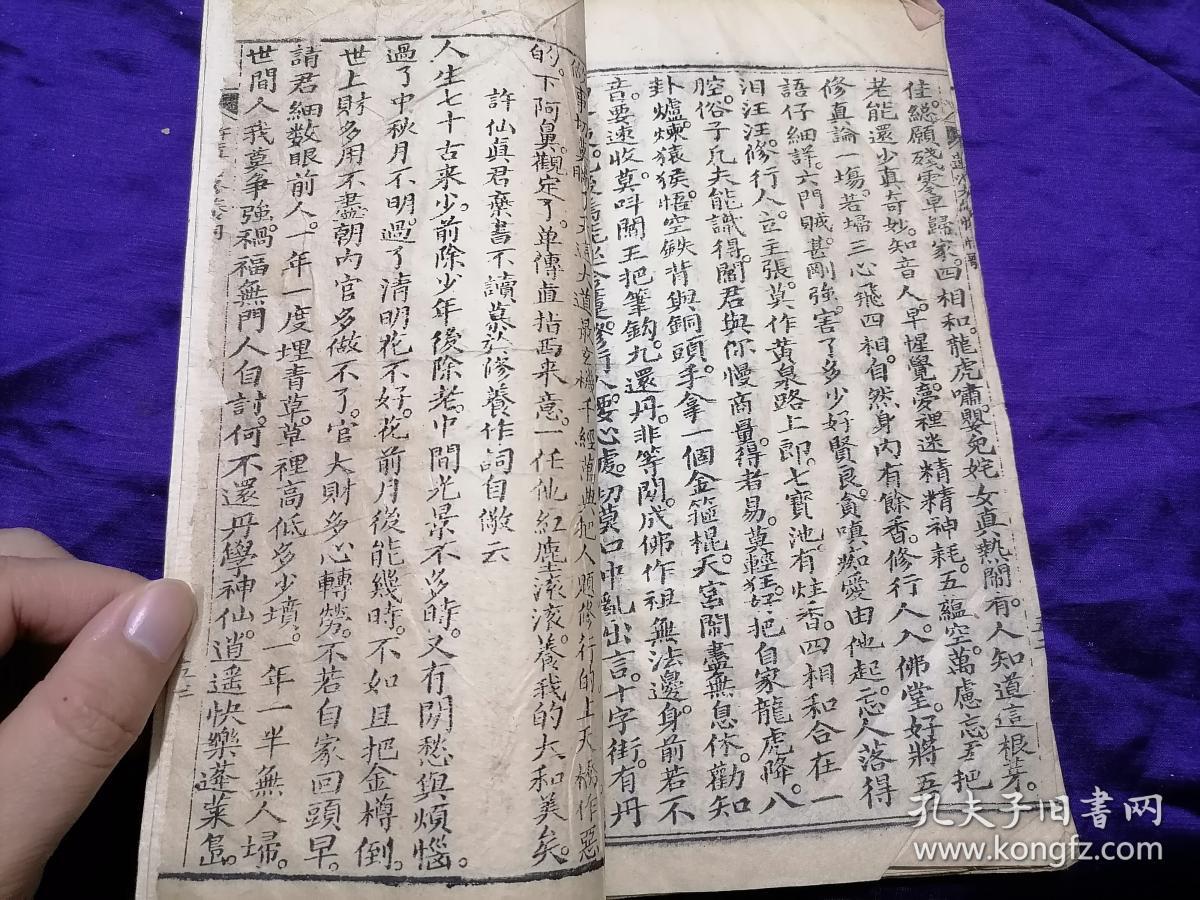 佳。總願殘零早歸家。四相和。龍虎嘯。嬰兒姹女真熱鬧。有人知道這根芽。
老能還少真奇妙。知音人。早惺覺。夢裡迷精精神耗。五蘊空。萬慮忘。且把
修真論一塲。若埽三心飛四相。自然身內有餘香。修行人。入佛堂。好將五
語仔細詳。六門賊。甚剛強。害了多少好賢良。貪嗔痴愛由他起。忘人落得
泪汪汪。修行人。立主張。莫作黃泉路上郎。七寶池。有炷香。四相和合在一
腔。俗子凡夫能識得。閻君與你慢商量。得者易。莫輕狂。好把自家龍虎降。八
卦爐。煉猿猴。悟空鉄背與銅頭。手拿一個金箍棍。天宮鬧盡無息休。勸知
音。要速收。莫呌閻王把筆鈎。九還丹。非等閑。成佛作祖無法邊。身前若不
修行人。要心處。切莫口中亂出言。十字街。有丹
大道最玄機。千經萬典把人題。修行的上天橋。作惡
的。下阿鼻。觀定了。单傳直指西来意。一任他紅塵滚滚。養我的太和美矣。
許仙真君棄書不讀慕於修養作詞自儆云
人生七十古来少。前除少年後除老。中間光景不多時。又有閑愁與煩惱。
過了中秋月不明。過了清明花不好。花前月後能幾時。不如且把金樽倒。
世上財多用不盡。朝內官多做不了。官大財多心轉勞。不若自家回頭早。
請君細数眼前人。一年一度埋青草。草裡高低多少墳。一年一半無人埽。
世間人我莫争強。禍福無門人自討。何不還丹學神仙。逍遥快樂蓬萊島。
孔夫子旧书网
www.kongfz.com